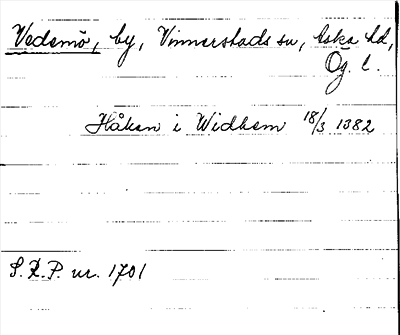 Vedemö, by, Vinnerstads sn, Aska hd,
Ög. l.
Håkan i Widhem 18/3 1382
S.R.P. nr. 1701